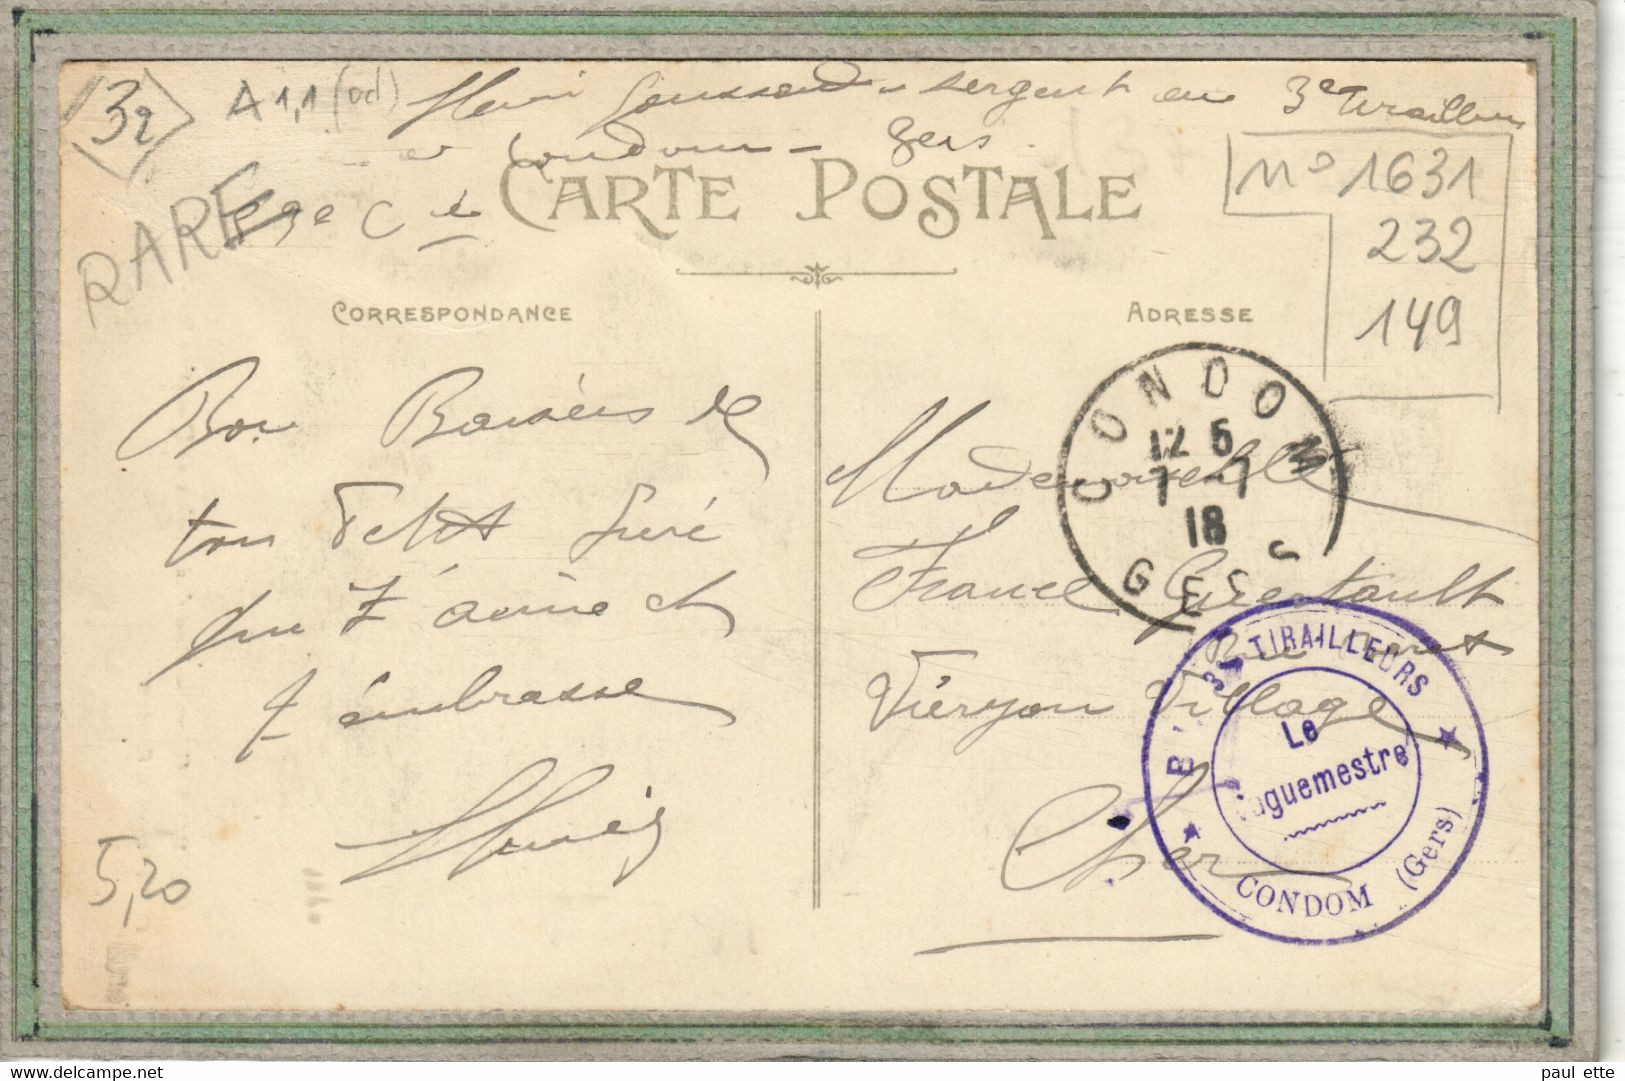 32
A 1,1 (od)
Henri sergent au 3e Tirailleurs
a Condom - Gers.
RARE
CARTE POSTALE
No 1631
232
149
CORRESPONDANCE
ADRESSE
Bon Baisers de
ton Petit
qui t'aime et
t'embrasse
5,20
CONDOM
12 5
7-7
18
GERS
Mademoiselle
France
Rue
Vierzon Village
Cher
3e TIRAILLEURS
Le
Vaguemestre
CONDOM (Gers)
delcampe.net
paul ette